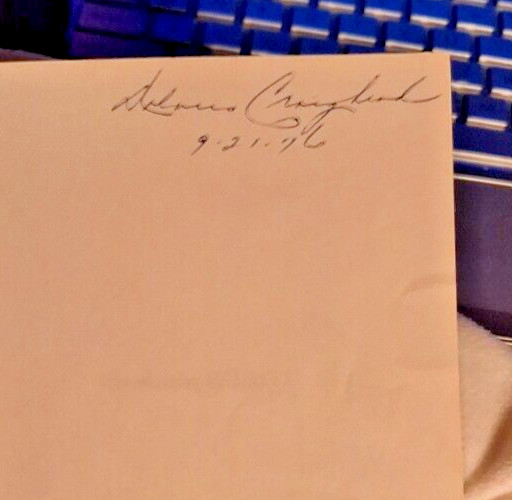 Dolores Craighead
9.21.76